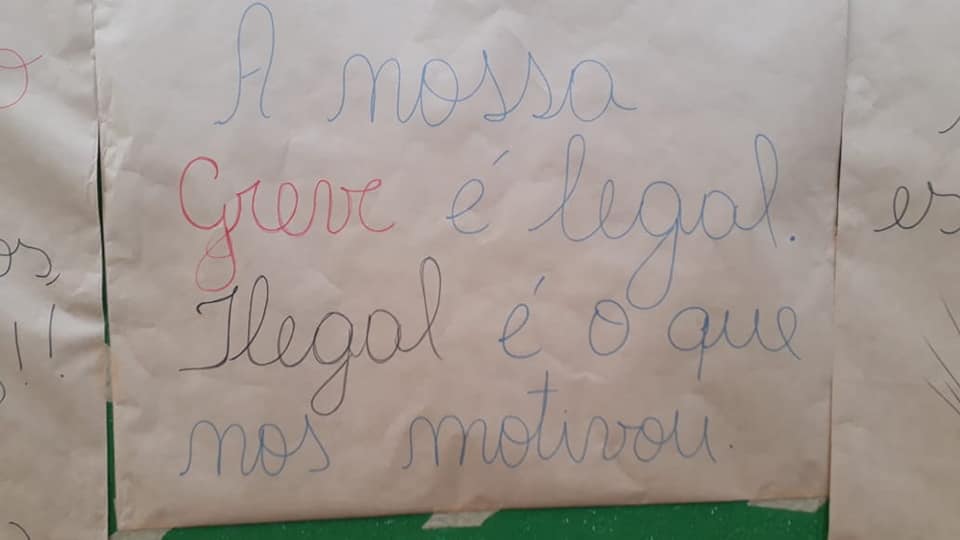 A nossa
Greve é legal.
Ilegal é o que
nos motivou.
os,
!!
es